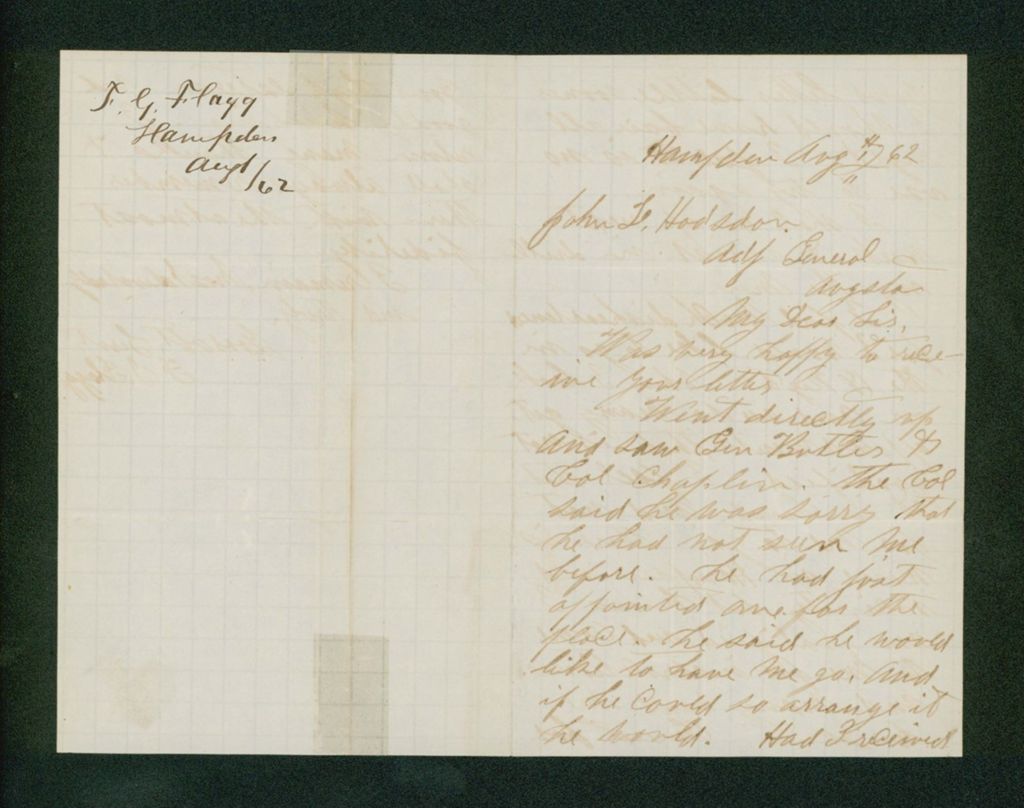 F. G. Flagg
Hampden
Aug /62
Hampden Aug 62
John L. Hodsdon.
Adj General
Augusta
My Dear Sir,
Was very happy to rece-
ive your letter
Went directly up
and saw Gen Butler &
Col Chaplin. The Col
said he was sorry that
he had not seen me
before. he had just
appointed one for the
place. he said he would
like to have me go. and
if he could so arrange it
he would. Had I received